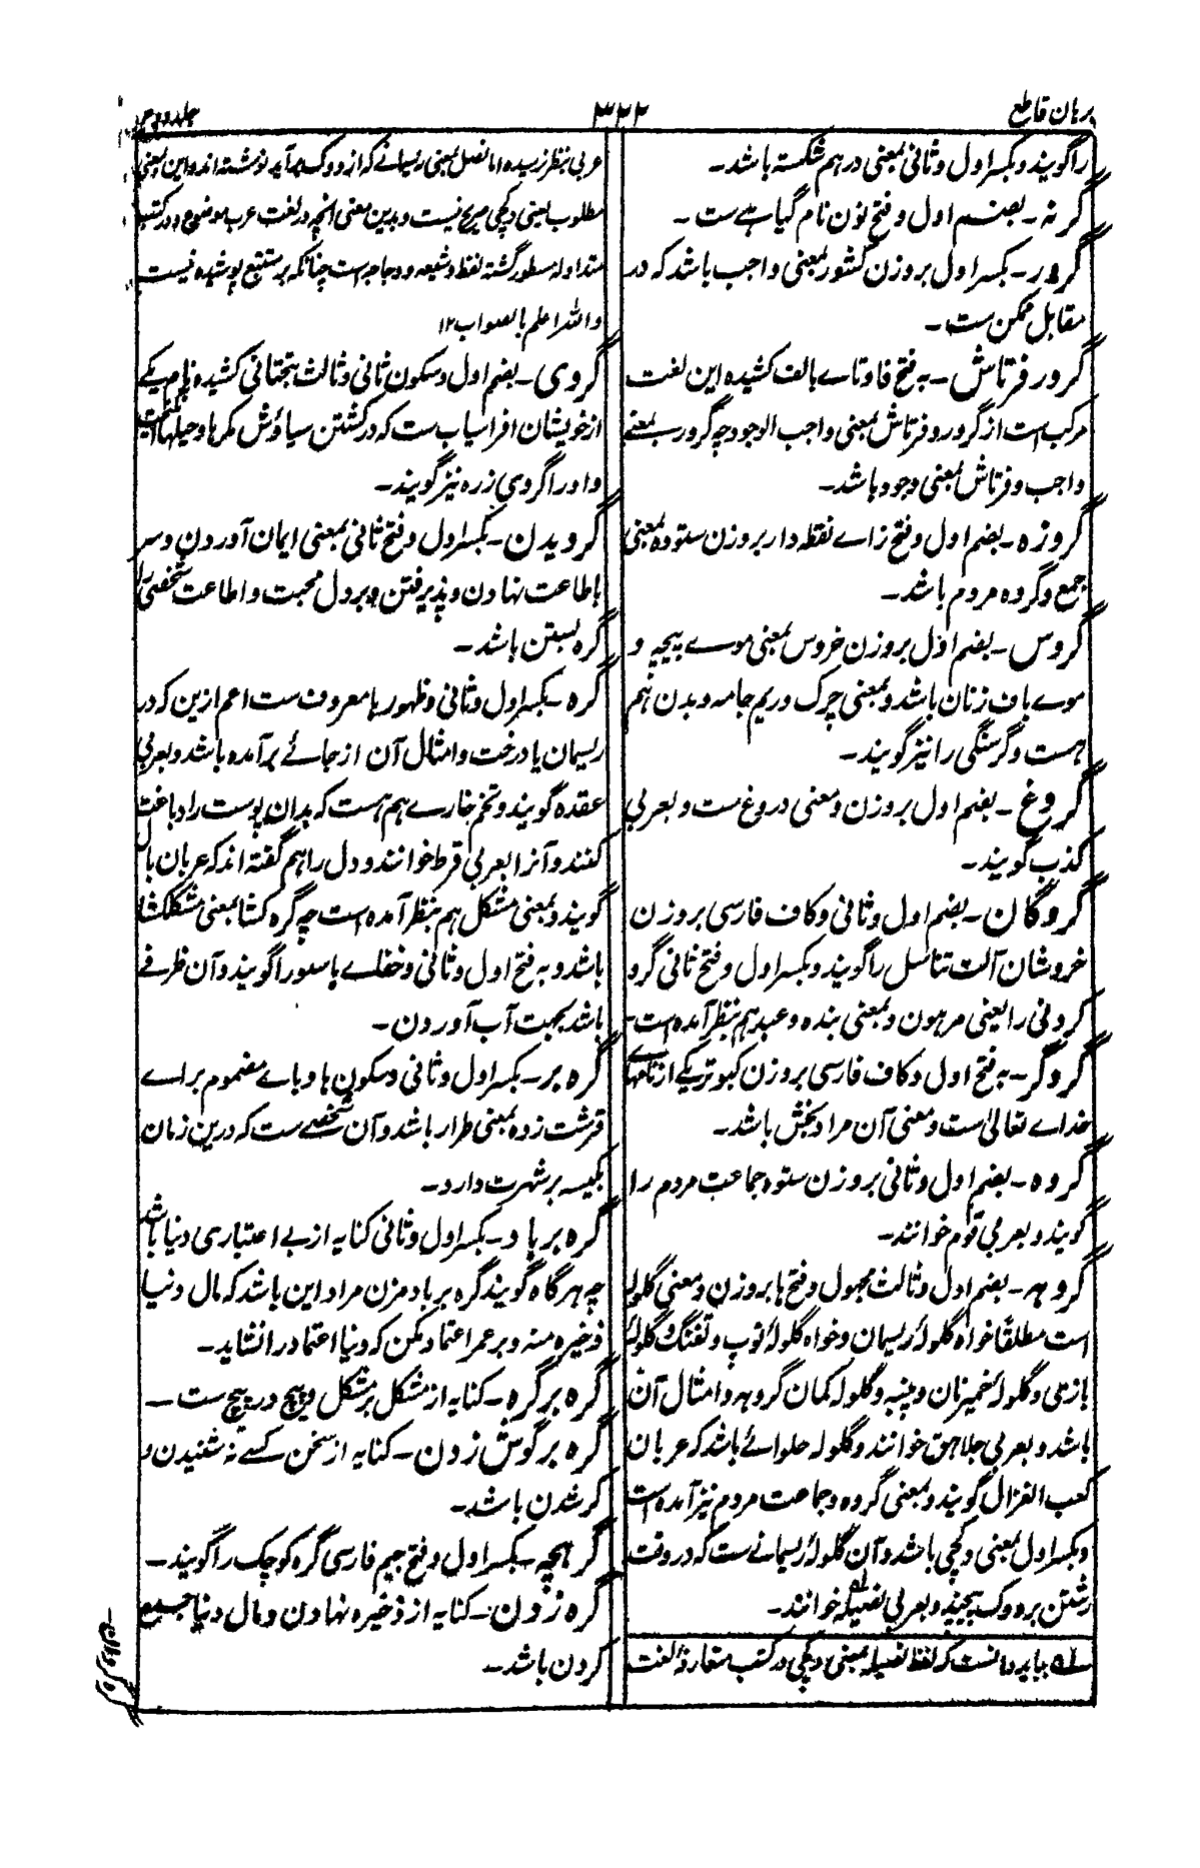 برهان قاطع
۳۲۲
جلد دوم
را گویند و بکسر اول و ثانی بمعنی درهم شکسته باشد۔
گرنہ۔ بضم اول و فتح نون نام گیاہے ست۔
گرور۔ بکسر اول بروزن کشور بمعنی واجب باشد کہ در
مقابل ممکن ست۔
گرور فرتاش۔ بہ فتح فا و تاے بالف کشیدہ این لغت
مرکب است از گرور و فرتاش بمعنی واجب الوجود چہ گرور بمعنے
واجب و فرتاش بمعنی وجود باشد۔
گروزہ۔ بضم اول و فتح زاے نقطہ دار بروزن ستودہ بمعنی
جمع و گروہ مردم باشد۔
گروس۔ بضم اول بروزن خروس بمعنی موے پیچہ و
موے باف زنان باشد و بمعنی چرک و ریم جامہ و بدن ہم
ہست و گرسنگی را نیز گویند۔
گروغ۔ بضم اول بروزن و معنی دروغ ست و بعربی
کذب گویند۔
گروگان۔ بضم اول و ثانی و کاف فارسی بروزن
خروشان آلت تناسل را گویند و بکسر اول و فتح ثانی گرو
کردنی را یعنی مرہون و بمعنی بندہ و عبد ہم بنظر آمدہ است۔
گروگر۔ بہ فتح اول و کاف فارسی بروزن کبوتر یکے از نامہاے
خداے تعالیٰ ست و معنی آن مراد بخش باشد۔
گروہ۔ بضم اول و ثانی بروزن ستوہ جماعت مردم را
گویند و بعربی قوم خوانند۔
گروہہ۔ بضم اول و ثالث مجہول و فتح ہا بروزن و معنی گلولہ
است مطلقاً خواہ گلولۂ ریسمان و خواہ گلولۂ توپ و تفنگ و گلولۂ
بازی و گلولۂ خمیر نان و پنبہ و گلولہ کمان گروہہ و امثال آن
باشد و بعربی جلاہق خوانند و گلولہ حلوائے باشد کہ عربان
کعب الغزال گویند و بمعنی گروہ و جماعت مردم نیز آمدہ است
و بکسر اول بمعنی دکچی باشد و آن گلولۂ ریسمانے ست کہ در وقت
رشتن بردوک پیچند و بعربی نضیلہ خوانند۔
باید دانست کہ لفظ نضیلہ بمعنی دکچی در کتب متعارفۂ لغت
عربی بنظر نرسیدہ اما نصل بمعنی ریسمانے کہ از دوک برآید نوشتہ اند و این بمعنی
مطلوب یعنی دکچی صریح نیست و بدین معنی انچہ در لغت عرب موضوع و در کتب
متداولہ مسطور گشتہ لفظ وشیعہ و دجاجہ است چنانکہ بر متتبع پوشیدہ نیست
واللہ اعلم بالصواب ۱۲
گروی۔ بضم اول و سکون ثانی و ثالث بتحتانی کشیدہ نام یکے
از خویشان افراسیاب ست کہ در کشتن سیاؤش مکرہا و حیلہا انگیخت
و او را گروی زرہ نیز گویند۔
گرویدن۔ بکسر اول و فتح ثانی بمعنی ایمان آوردن و سر
باطاعت نہادن و پذیرفتن و بر دل محبت و اطاعت شخصی را
گرہ بستن باشد۔
گرہ۔ بکسر اول و ثانی و ظہور ہا معروف ست اعم ازین کہ در
ریسمان یا درخت و امثال آن از جائے برآمدہ باشد و بعربی
عقدہ گویند و تخم خارے ہم ہست کہ بدان پوست را دباغت
کنند و آنرا بعربی قرط خوانند و دل را ہم گفتہ اند کہ عربان بال
گویند و بمعنی مشکل ہم بنظر آمدہ است چہ گرہ کشا بمعنی مشکلکشا
باشد و بہ فتح اول و ثانی و خفاے ہا سبو را گویند و آن ظرفے
باشد بجہت آب آوردن۔
گرہ بر۔ بکسر اول و ثانی و سکون ہا و باے مضموم براے
قرشت زدہ بمعنی طرار باشد و آن شخصے ست کہ درین زمان
بکیسہ بر شہرت دارد۔
گرہ بر باد۔ بکسر اول و ثانی کنایہ از بے اعتباری دنیا باشد
چہ ہرگاہ گویند گرہ بر باد مزن مراد این باشد کہ مال دنیا
ذخیرہ منہ و بر عمر اعتماد مکن کہ دنیا اعتماد را نشاید۔
گرہ بر گرہ۔ کنایہ از مشکل بر مشکل و پیچ در پیچ ست۔
گرہ بر گوش زدن۔ کنایہ از سخن کسے نہ شنیدن و
کر شدن باشد۔
گرہچہ۔ بکسر اول و فتح جیم فارسی گرہ کوچک را گویند۔
گرہ زدن۔ کنایہ از ذخیرہ نہادن و مال دنیا جمع
کردن باشد۔